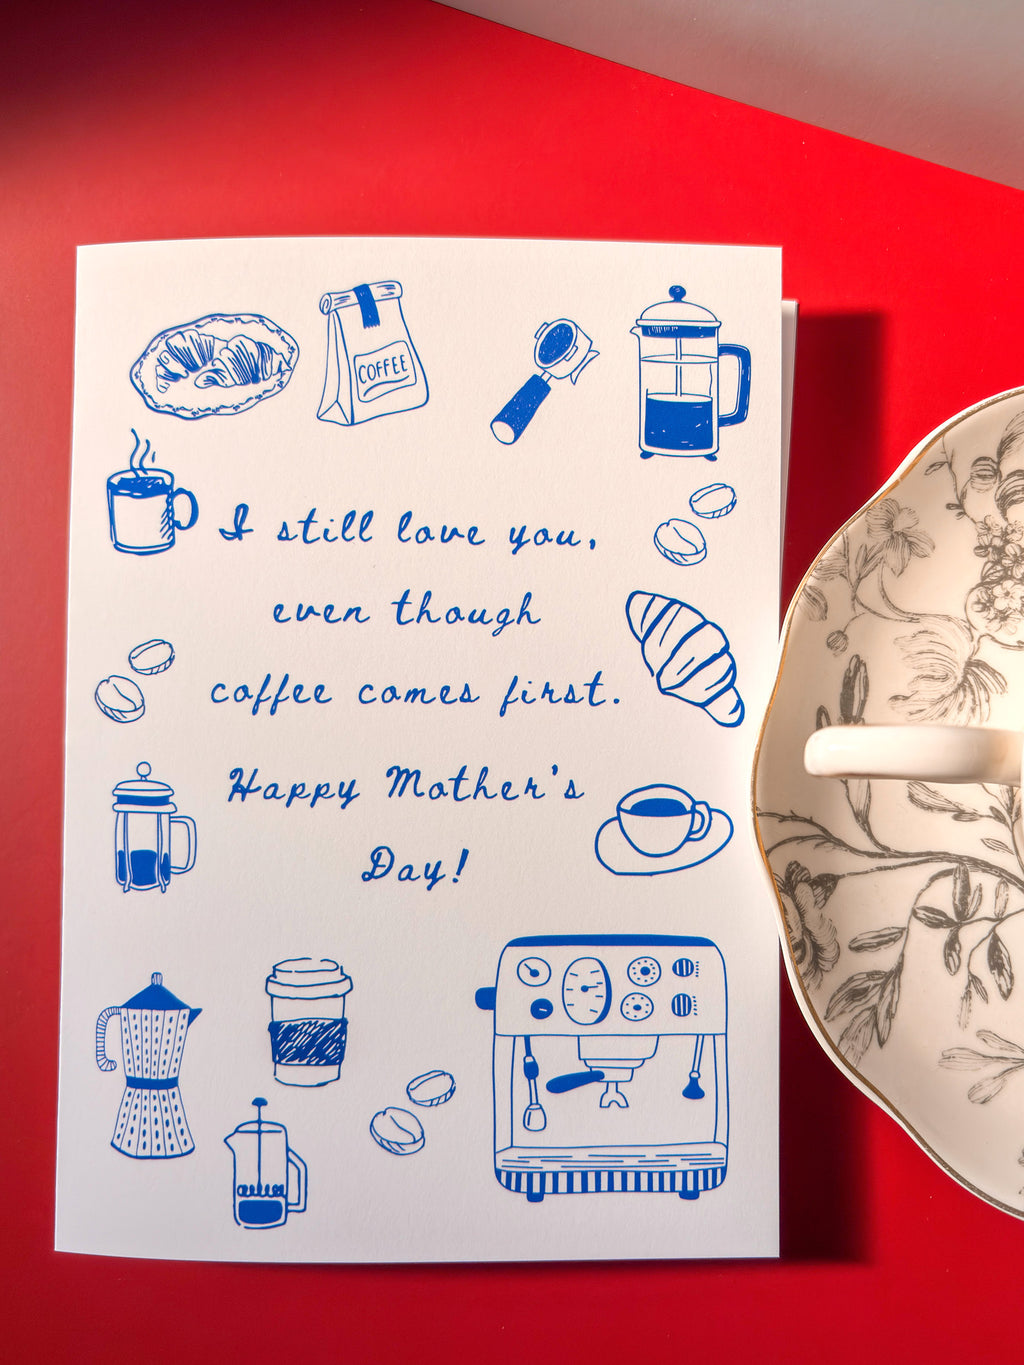 COFFEE
I still love you,
even though
coffee comes first.
Happy Mother's
Day!